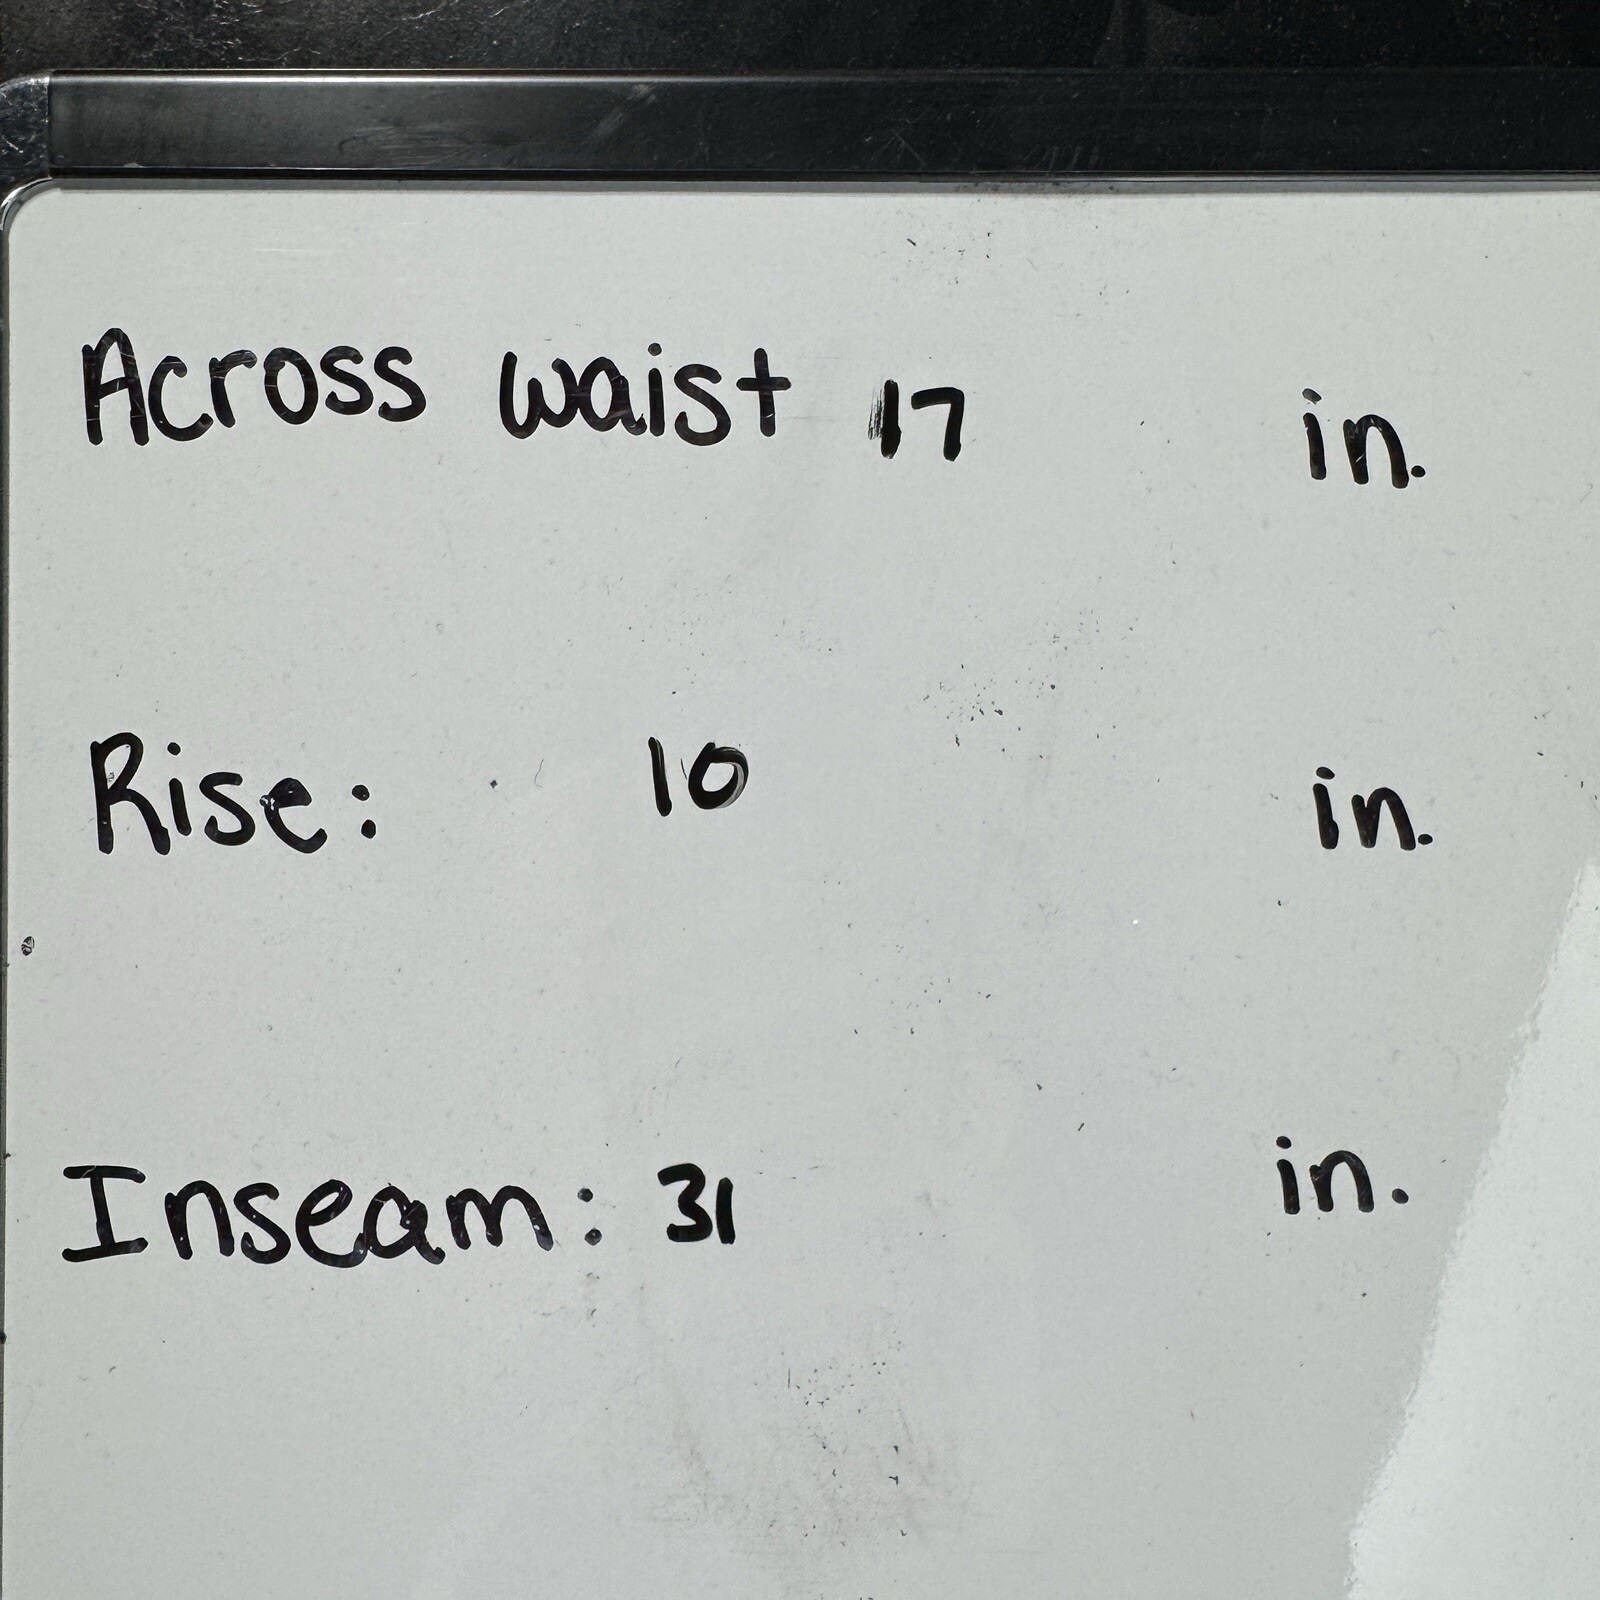 Across waist 17 in.
Rise: 10 in.
Inseam: 31 in.